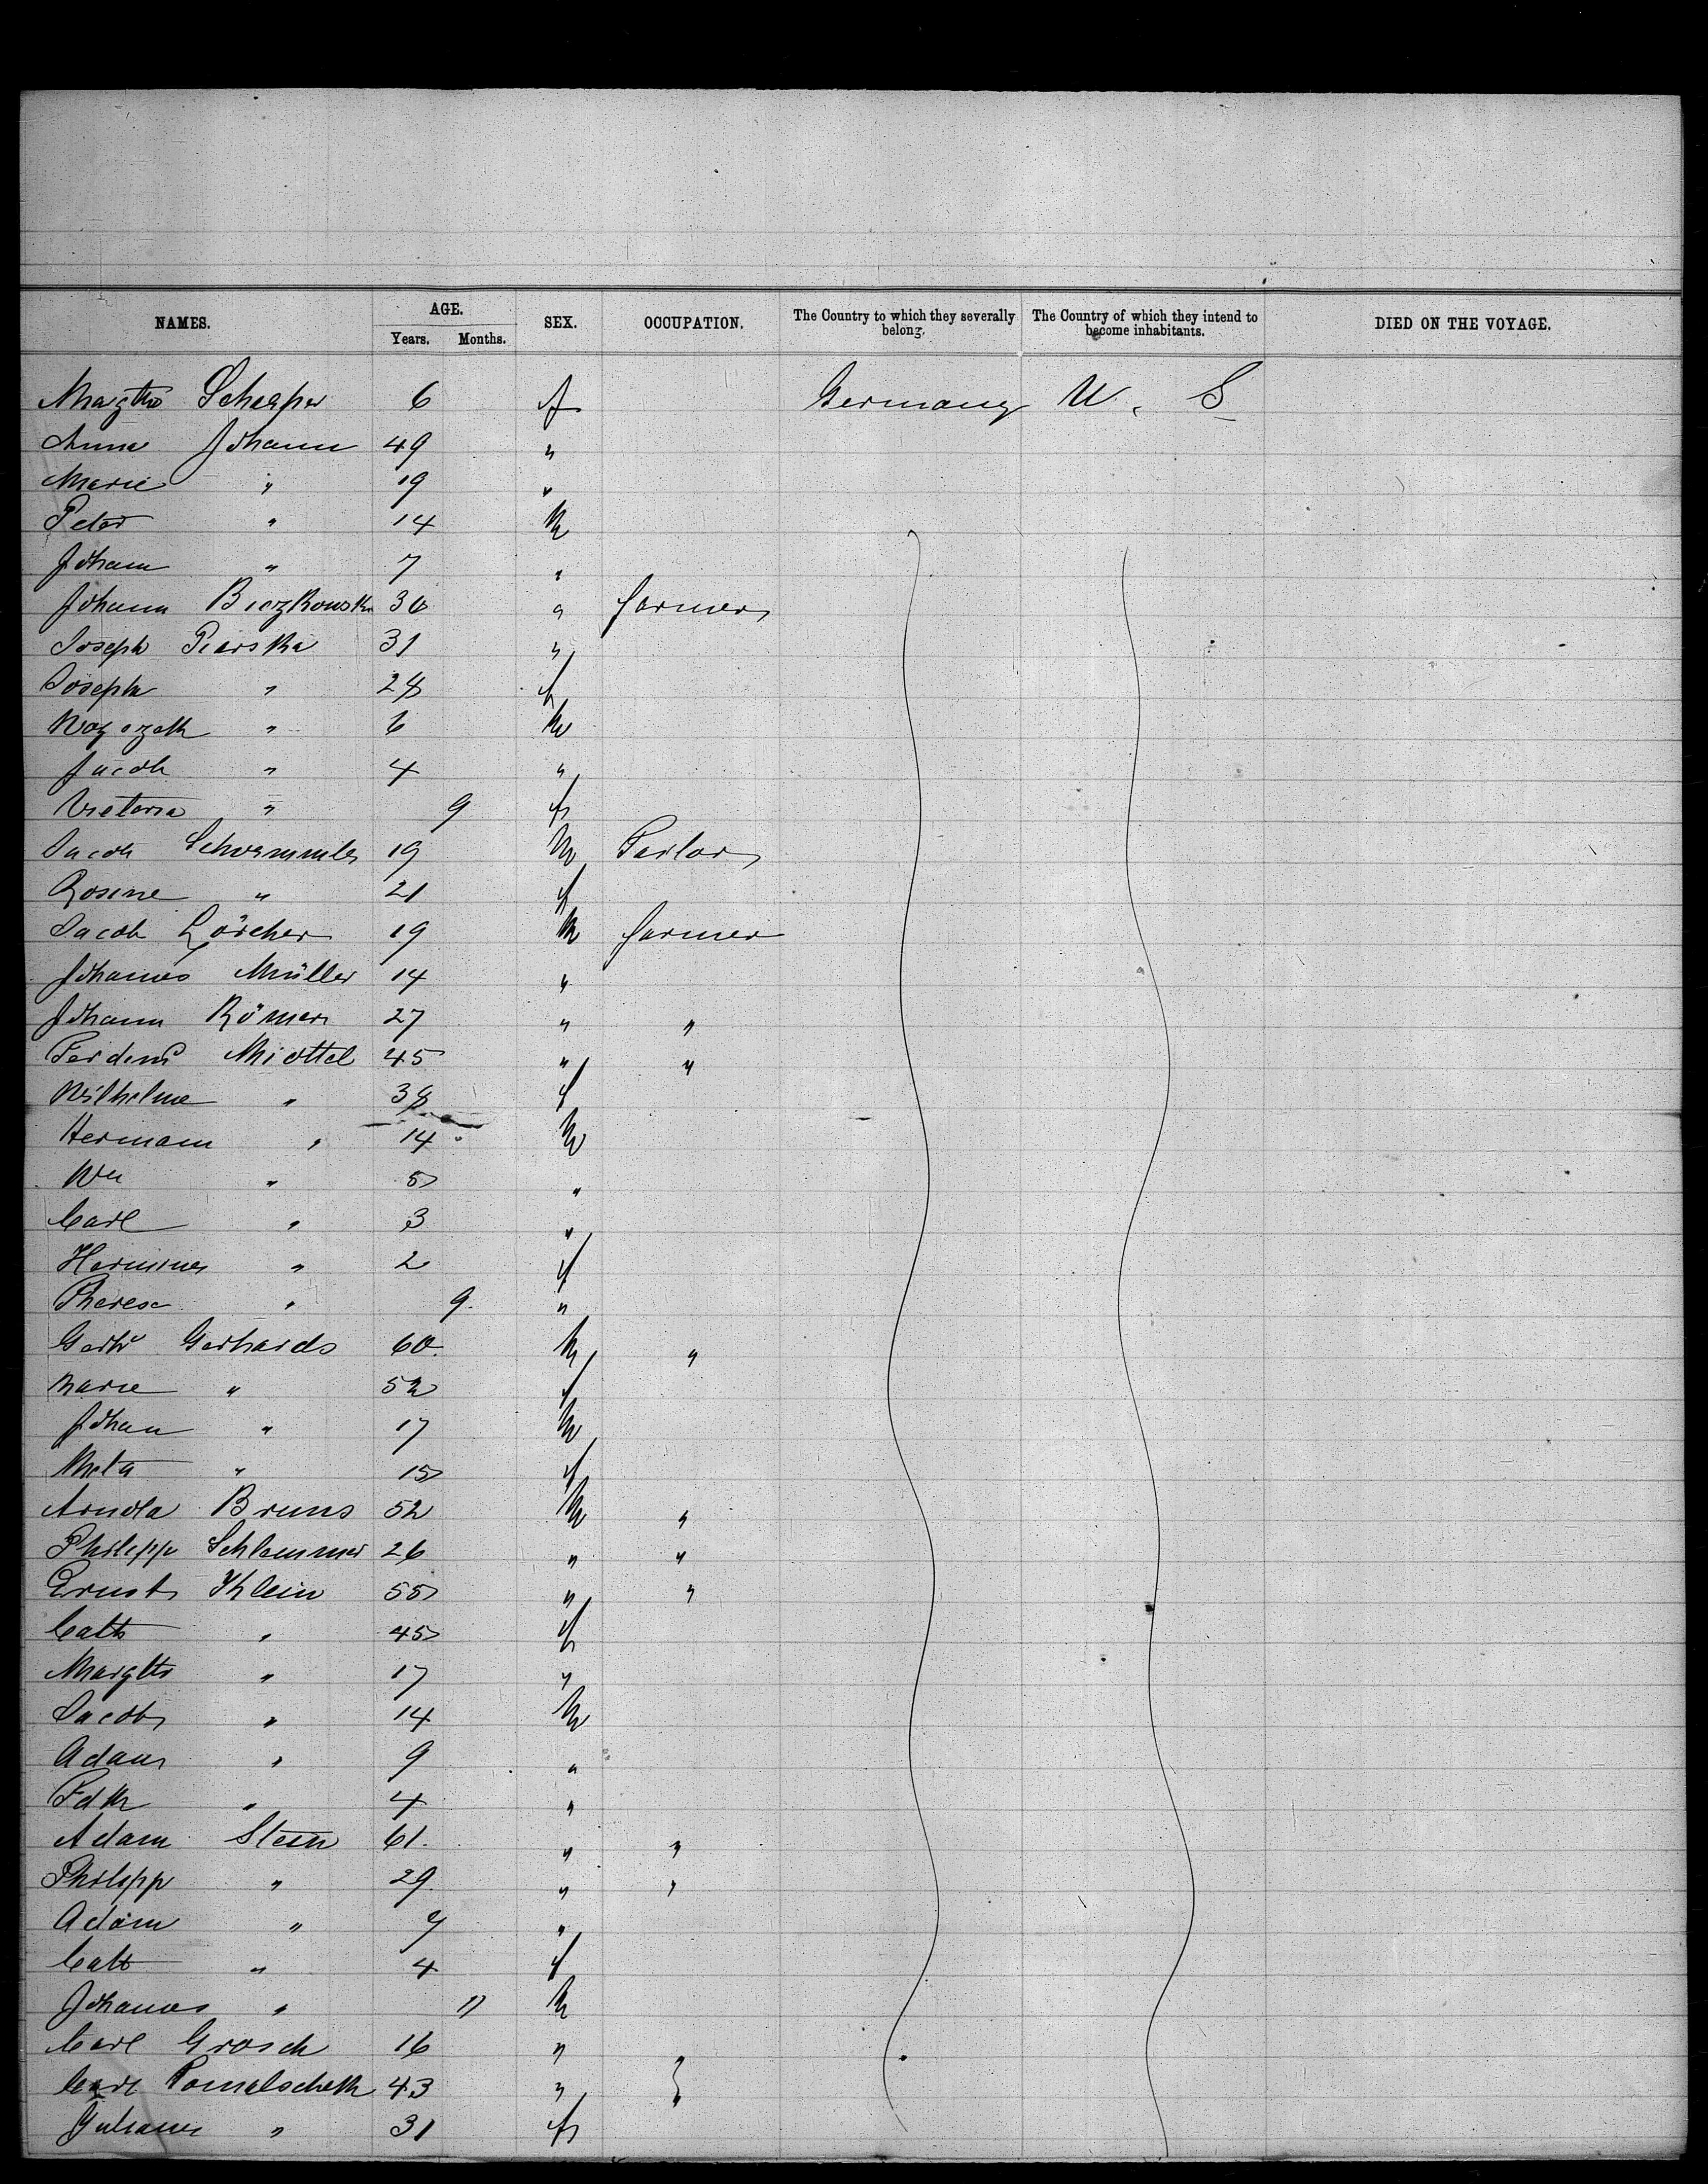 NAMES. AGE. Years. Months. SEX. OCCUPATION. The Country to which they severally belong. The Country of which they intend to become inhabitants. DIED ON THE VOYAGE.
Margthe Schaper 6 f Germany U. S
Anna Johann 49 "
Marie " 19 "
Peter " 14 M
Johann " 7 "
Johann 30 " farmer
Joseph Pierska 31 "
Joseph " 28 f
" 6 M
Jacob " 4 "
Victoria " 9 f
Jacob Schwemmle 19 M Tailor
Rosine " 21 f
Jacob Lörcher 19 M farmer
Johannes Müller 14 "
Johann Römer 27 " "
Ferdind Miottel 45 " "
Wilhelme " 38 f
Hermann " 14 M
Wm " 5 "
Carl " 3 "
Hermine " 2 f
Therese " 9 "
Gerhd Gerhards 60 M "
Marie " 52 f
Johan " 17 M
Meta " 15 f
Arnold Bruns 52 M "
Philipp Schlemmer 26 " "
Ernst Klein 55 " "
Cath " 45 f
Margthe " 17 "
Jacob " 14 M
Adam " 9 "
Fdk " 4 "
Adam Stein 61 " "
Philipp " 29 " "
Adam " "
Cath " 4 f
Johannes " 11 M
Carl Grosch 16 " "
Carl 43 " "
Juliane " 31 f